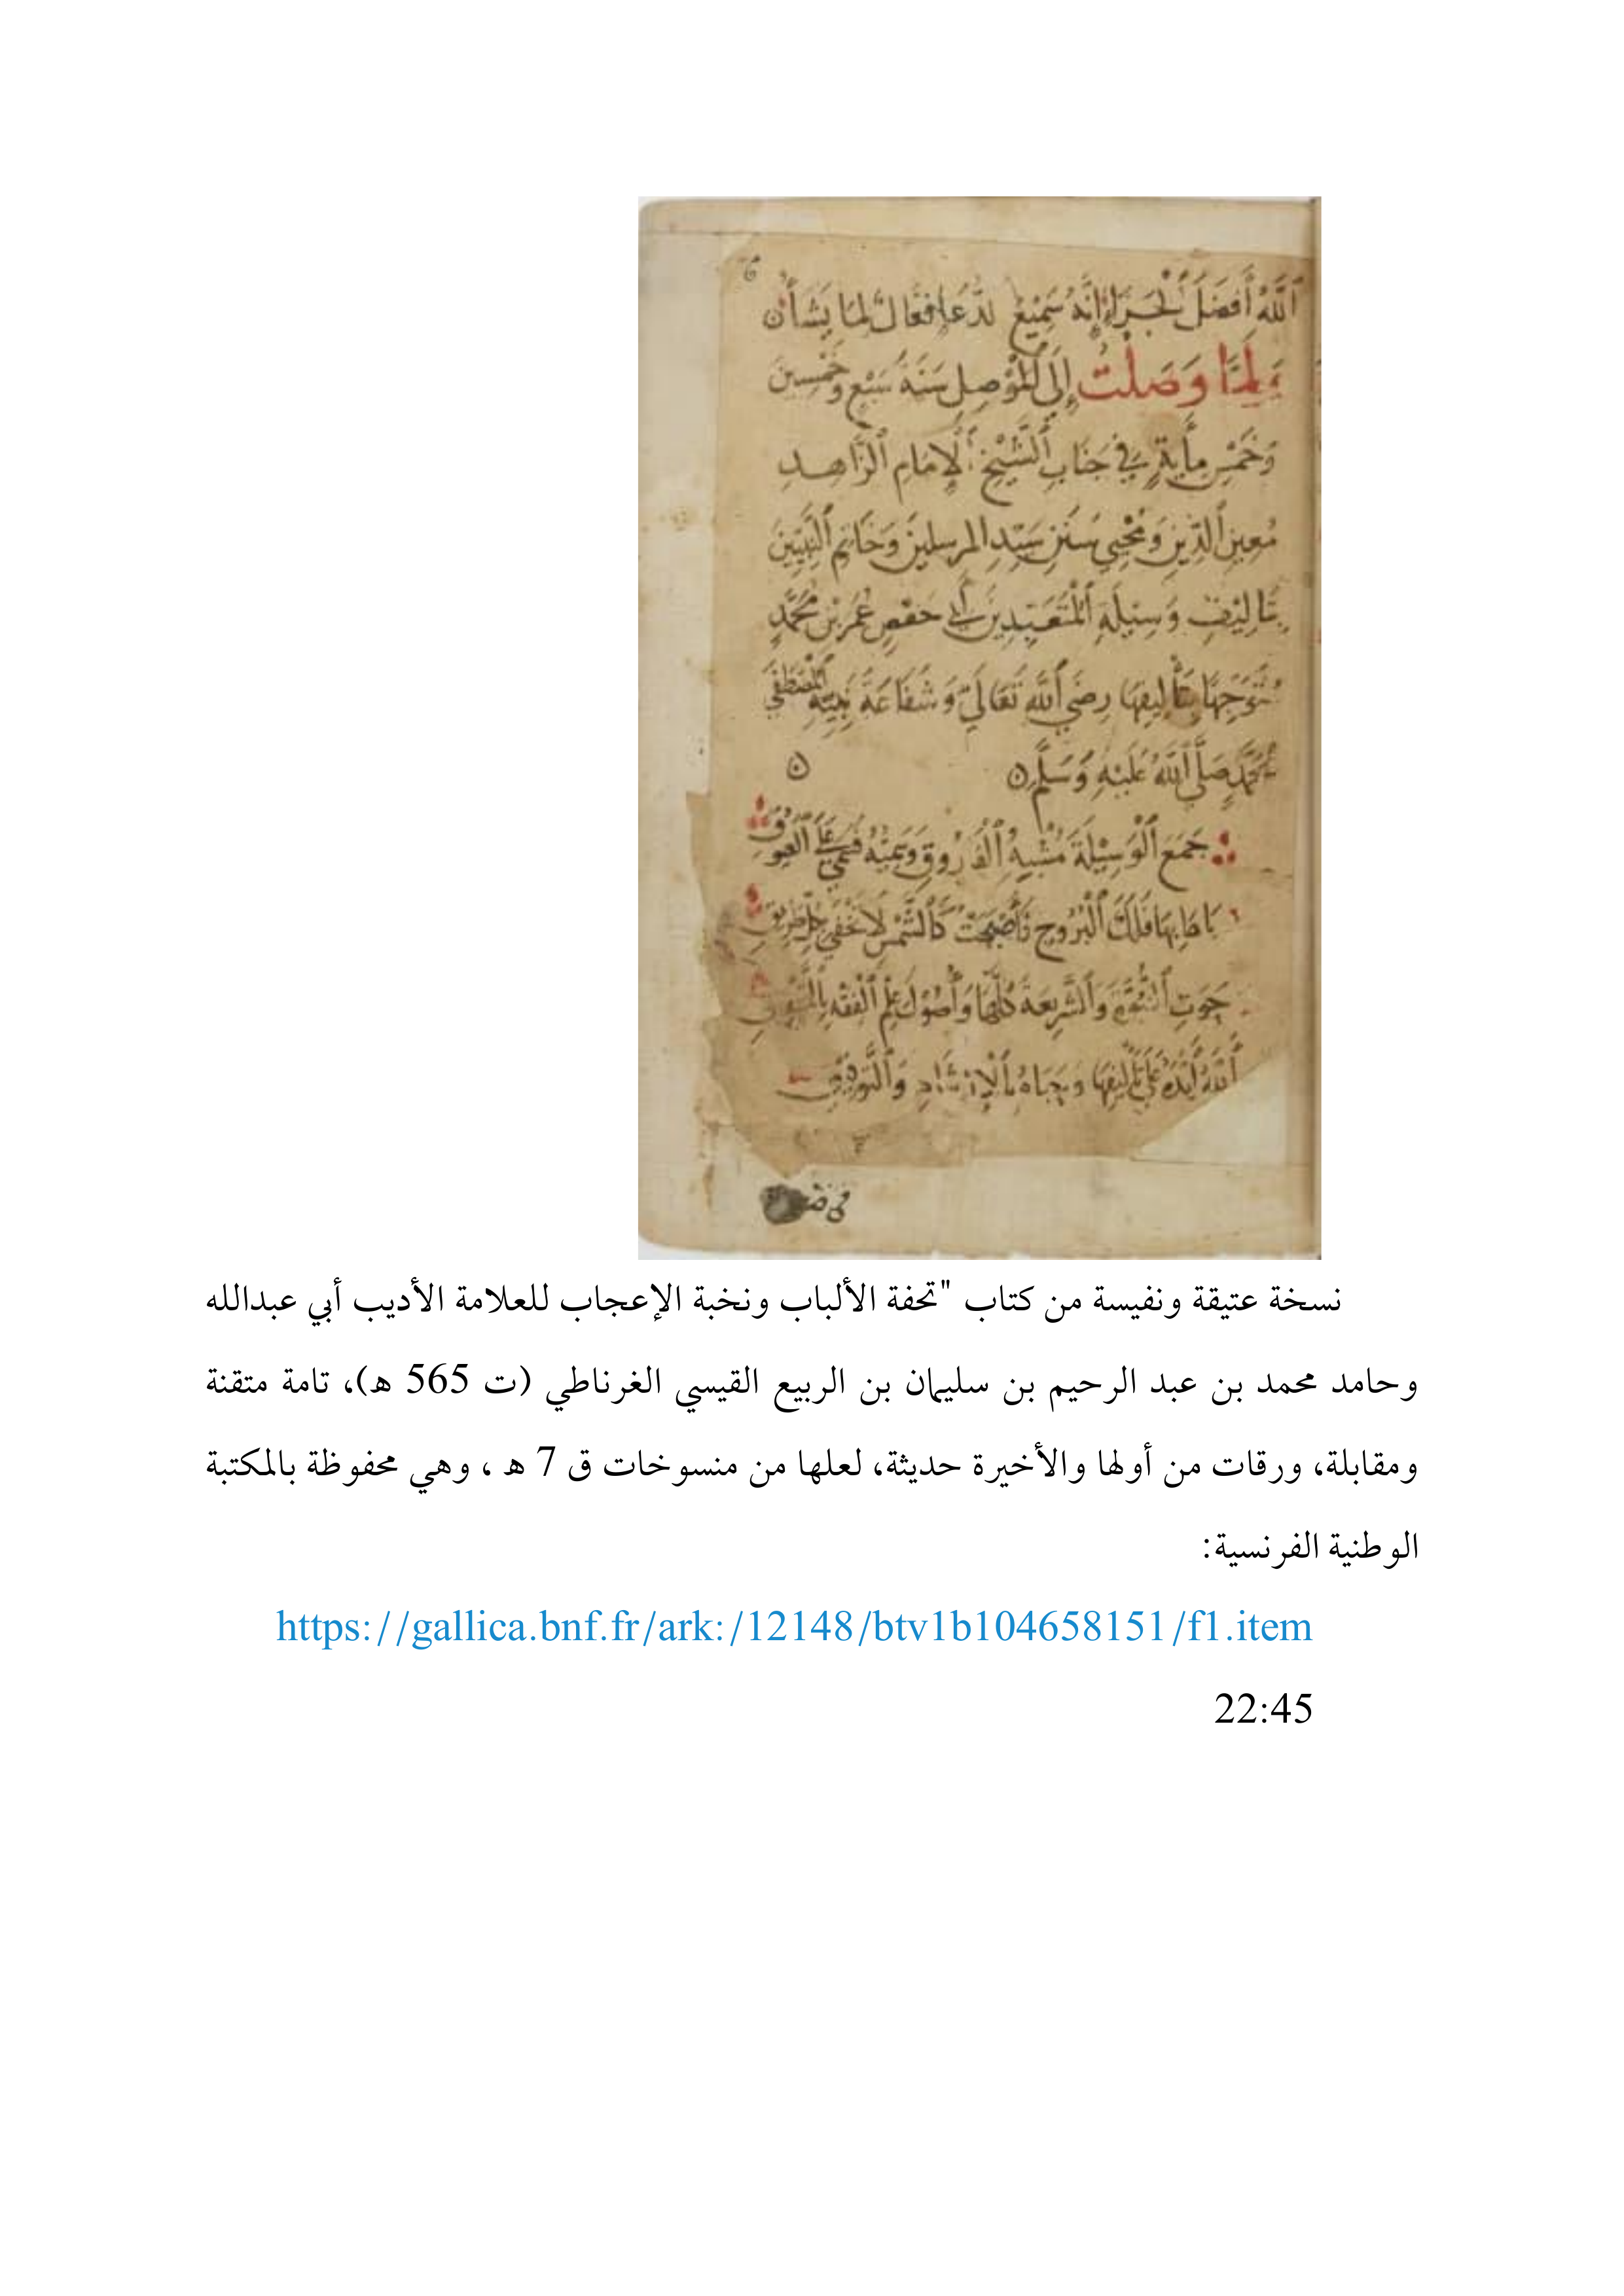 ٱللَّهُ أَفْضَلَ ٱلْجَزَاءِ إِنَّهُ سَمِيْعُ لدُّعَا فَعَّالٌ لِمَا يَشَأُ
وَلَمَّا وَصَلْتُ إِلَى ٱلْمَوْصِلِ سَنَةَ سَبْعٍ وَخَمْسِينَ
وَخَمْسِ مِأَيةٍ فِي جَنَابِ ٱلشَّيْخِ ٱلْإِمَامِ ٱلزَّاهِدِ
مُعِينِ ٱلدِّينِ وَمُحْيِي سُنَنِ سَيِّدِ المرسلينَ وَخَاتِمِ ٱلنَّبِيِّينَ
بِتَالِيْفِ وَسِيْلَةِ ٱلْمُتَعَبِّدِينَ أَبِي حَفْصٍ عُمَرَ بْنِ مُحَمَّدٍ
بِتَأْلِيفِهَا رِضَى ٱللَّهِ تَعَالَى وَشَفَاعَةَ نَبِيِّهِ ٱلْمُصْطَفَى
مُحَمَّدٍ صَلَّى ٱللَّهُ عَلَيْهِ وَسَلَّمَ
جَمَعَ ٱلْوَسِيْلَةَ مُشْبِهُ ٱلْفَارُوقِ وَسَمِيُّهُ
فَلَكَ ٱلْبُرُوجِ فَأَصْبَحَتْ كَٱلشَّمْسِ لَا تَخْفَى
حَوَتِ ٱلنُّبُوَّةَ وَٱلشَّرِيعَةَ كُلَّهَا وَأُصُوْلَ عِلْمِ ٱلْفِقْهِ
ٱللَّهُ أَيَّدَهُ عَلَى تَأْلِيفِهَا وَحَبَاهُ بِٱلْإِرْشَادِ وَٱلتَّوْفِيقِ
نسخة عتيقة ونفيسة من كتاب "تحفة الألباب ونخبة الإعجاب للعلامة الأديب أبي عبدالله
وحامد محمد بن عبد الرحيم بن سليمان بن الربيع القيسي الغرناطي (ت 565 هـ)، تامة متقنة
ومقابلة، ورقات من أولها والأخيرة حديثة، لعلها من منسوخات ق 7 هـ ، وهي محفوظة بالمكتبة
الوطنية الفرنسية:
https://gallica.bnf.fr/ark:/12148/btv1b104658151/f1.item
22:45